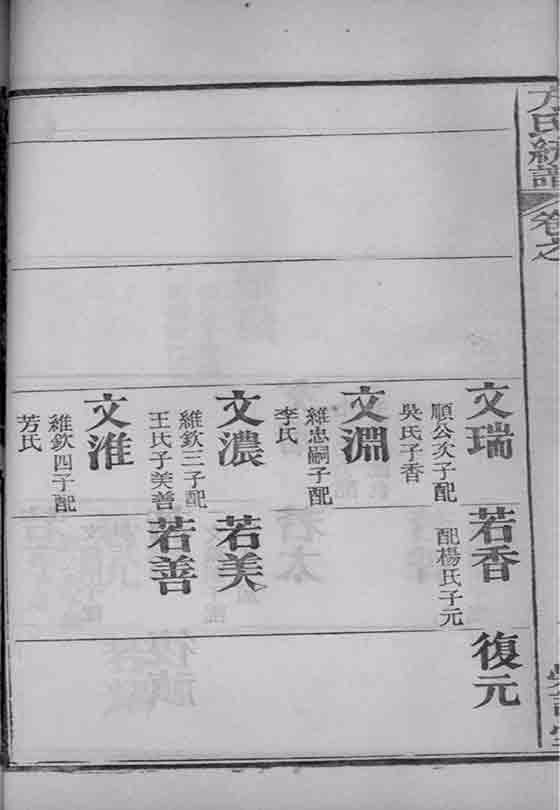 方氏統譜
卷之
文瑞
順公次子配
吳氏子香
若香
配楊氏子元
復元
文淵
維忠嗣子配
李氏
文濃
維欽三子配
王氏子美善
若美
若善
文淮
維欽四子配
芳氏